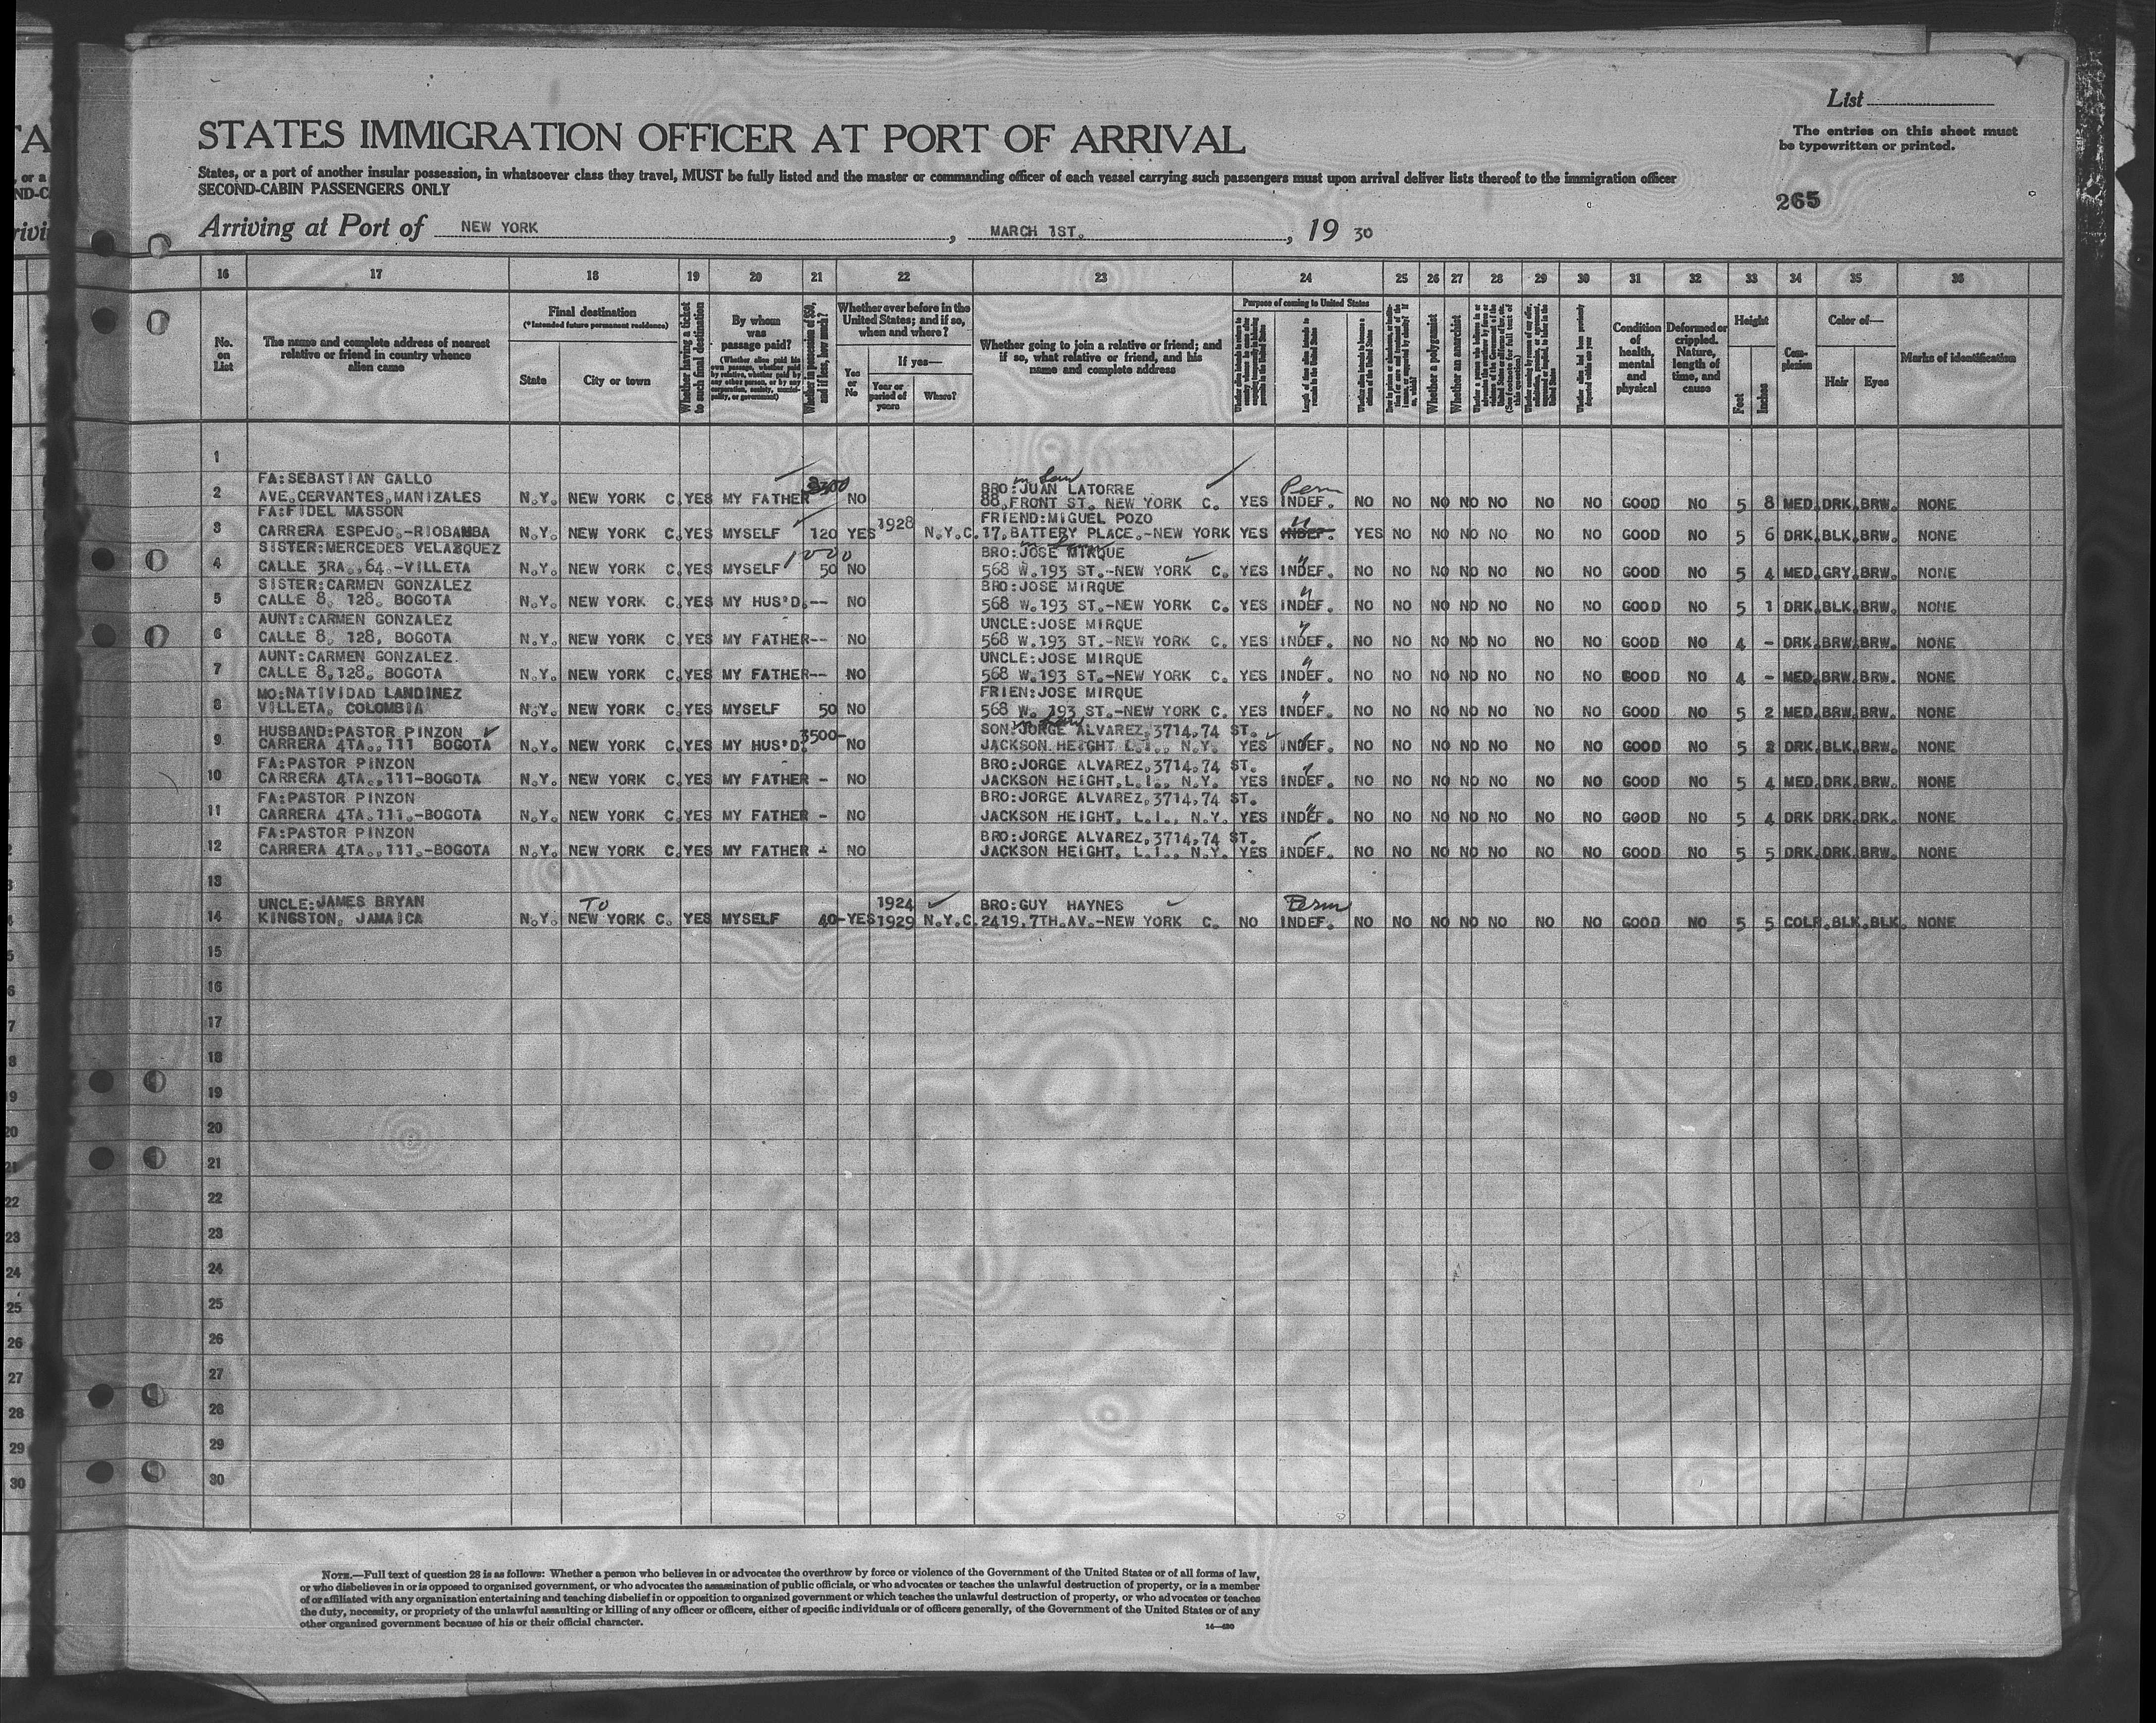 List
STATES IMMIGRATION OFFICER AT PORT OF ARRIVAL
The entries on this sheet must
be typewritten or printed.
States, or a port of another insular possession, in whatsoever class they travel, MUST be fully listed and the master or commanding officer of each vessel carrying such passengers must upon arrival deliver lists thereof to the immigration officer
SECOND-CABIN PASSENGERS ONLY
265
Arriving at Port of NEW YORK, MARCH 1ST., 19 30
16 17 18 19 20 21 22 23 24 25 26 27 28 29 30 31 32 33 34 35 36
No. on List
The name and complete address of nearest relative or friend in country whence alien came
Final destination
(*Intended future permanent residence)
State
City or town
Whether having a ticket to such final destination
By whom was passage paid?
(Whether alien paid his own passage, whether paid by relative, whether paid by any other person, or by any corporation, society, municipality, or government)
Whether in possession of $50, and if less, how much?
Whether ever before in the United States; and if so, when and where?
Yes or No
If yes—
Year or period of years
Where?
Whether going to join a relative or friend; and if so, what relative or friend, and his name and complete address
Purpose of coming to United States
Length of time alien intends to remain in the United States
Whether a polygamist
Whether an anarchist
Condition of health, mental and physical
Deformed or crippled. Nature, length of time, and cause
Height
Feet
Inches
Complexion
Color of—
Hair
Eyes
Marks of identification
1
FA:SEBASTIAN GALLO in law Perm
2 AVE.CERVANTES,MANIZALES N.Y. NEW YORK C. YES MY FATHER NO BRO:JUAN LATORRE 88,FRONT ST. NEW YORK C. YES INDEF. NO NO NO NO NO NO NO GOOD NO 5 8 MED. DRK. BRW. NONE
FA:FIDEL MASSON 1928 FRIEND:MIGUEL POZO "
3 CARRERA ESPEJO.-RIOBAMBA N.Y. NEW YORK C. YES MYSELF 120 YES N.Y.C. 17,BATTERY PLACE.-NEW YORK YES INDEF. YES NO NO NO NO NO NO GOOD NO 5 6 DRK. BLK. BRW. NONE
SISTER:MERCEDES VELAZQUEZ 1000 BRO:JOSE MIRQUE "
4 CALLE 3RA.,64.-VILLETA N.Y. NEW YORK C. YES MYSELF 50 NO 568 W.193 ST.-NEW YORK C. YES INDEF. NO NO NO NO NO NO NO GOOD NO 5 4 MED. GRY. BRW. NONE
SISTER:CARMEN GONZALEZ BRO:JOSE MIRQUE "
5 CALLE 8, 128. BOGOTA N.Y. NEW YORK C. YES MY HUS'D. -- NO 568 W.193 ST.-NEW YORK C. YES INDEF. NO NO NO NO NO NO NO GOOD NO 5 1 DRK. BLK. BRW. NONE
AUNT:CARMEN GONZALEZ UNCLE:JOSE MIRQUE "
6 CALLE 8, 128, BOGOTA N.Y. NEW YORK C. YES MY FATHER -- NO 568 W.193 ST.-NEW YORK C. YES INDEF. NO NO NO NO NO NO NO GOOD NO 4 - DRK. BRW. BRW. NONE
AUNT:CARMEN GONZALEZ. UNCLE:JOSE MIRQUE "
7 CALLE 8,128, BOGOTA N.Y. NEW YORK C. YES MY FATHER -- NO 568 W.193 ST.-NEW YORK C. YES INDEF. NO NO NO NO NO NO NO GOOD NO 4 - MED. BRW. BRW. NONE
MO:NATIVIDAD LANDINEZ FRIEN:JOSE MIRQUE "
8 VILLETA, COLOMBIA N.Y. NEW YORK C. YES MYSELF 50 NO 568 W. 193 ST.-NEW YORK C. YES INDEF. NO NO NO NO NO NO NO GOOD NO 5 2 MED. BRW. BRW. NONE
HUSBAND:PASTOR PINZON 3500- in law SON:JORGE ALVAREZ,3714,74 ST.
9 CARRERA 4TA.,111 BOGOTA N.Y. NEW YORK C. YES MY HUS'D. NO JACKSON HEIGHT L.I., N.Y. YES INDEF. NO NO NO NO NO NO NO GOOD NO 5 2 DRK. BLK. BRW. NONE
FA:PASTOR PINZON BRO:JORGE ALVAREZ,3714,74 ST. "
10 CARRERA 4TA.,111-BOGOTA N.Y. NEW YORK C. YES MY FATHER - NO JACKSON HEIGHT,L.I., N.Y. YES INDEF. NO NO NO NO NO NO NO GOOD NO 5 4 MED. DRK. BRW. NONE
FA:PASTOR PINZON BRO:JORGE ALVAREZ,3714,74 ST. "
11 CARRERA 4TA.111.-BOGOTA N.Y. NEW YORK C. YES MY FATHER - NO JACKSON HEIGHT, L.I., N.Y. YES INDEF. NO NO NO NO NO NO NO GOOD NO 5 4 DRK DRK. DRK. NONE
FA:PASTOR PINZON BRO:JORGE ALVAREZ,3714,74 ST. "
12 CARRERA 4TA.,111.-BOGOTA N.Y. NEW YORK C. YES MY FATHER - NO JACKSON HEIGHT, L.I., N.Y. YES INDEF. NO NO NO NO NO NO NO GOOD NO 5 5 DRK. DRK. BRW. NONE
13
UNCLE:JAMES BRYAN TO 1924 BRO:GUY HAYNES Perm
14 KINGSTON, JAMAICA N.Y. NEW YORK C. YES MYSELF 40- YES 1929 N.Y.C. 2419,7TH.AV.-NEW YORK C. NO INDEF. NO NO NO NO NO NO NO GOOD NO 5 5 COLR. BLK. BLK. NONE
15
16
17
18
19
20
21
22
23
24
25
26
27
28
29
30
NOTE.—Full text of question 28 is as follows: Whether a person who believes in or advocates the overthrow by force or violence of the Government of the United States or of all forms of law,
or who disbelieves in or is opposed to organized government, or who advocates the assassination of public officials, or who advocates or teaches the unlawful destruction of property, or is a member
of or affiliated with any organization entertaining and teaching disbelief in or opposition to organized government or which teaches the unlawful destruction of property, or who advocates or teaches
the duty, necessity, or propriety of the unlawful assaulting or killing of any officer or officers, either of specific individuals or of officers generally, of the Government of the United States or of any
other organized government because of his or their official character.
14—480